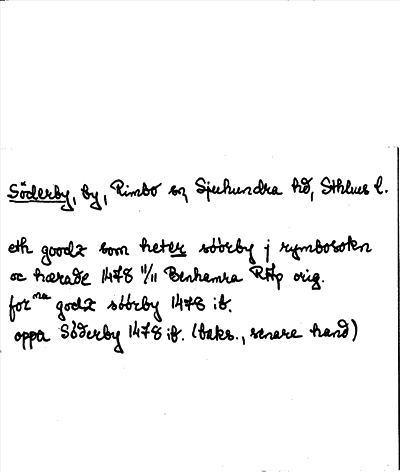 Söderby, by, Rimbo sn, Sjuhundra hd, Sthlms l.
eth goodz som heter söörby j rymbosokn
oc hærade 1478 11/11 Benhamra RAp orig.
for^na godz söörby 1478 ib.
oppa Söderby 1478 ib. (baks., senare hand)